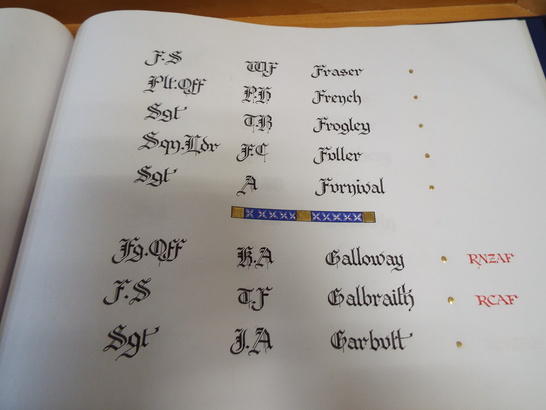 F.S W.F Fraser
Plt:Off P.H French
Sgt T.B Frogley
Sqn.Ldr F.C Fuller
Sgt A Furnival
Fg.Off K.A Galloway RNZAF
F.S T.F Galbraith RCAF
Sgt J.A Garbutt